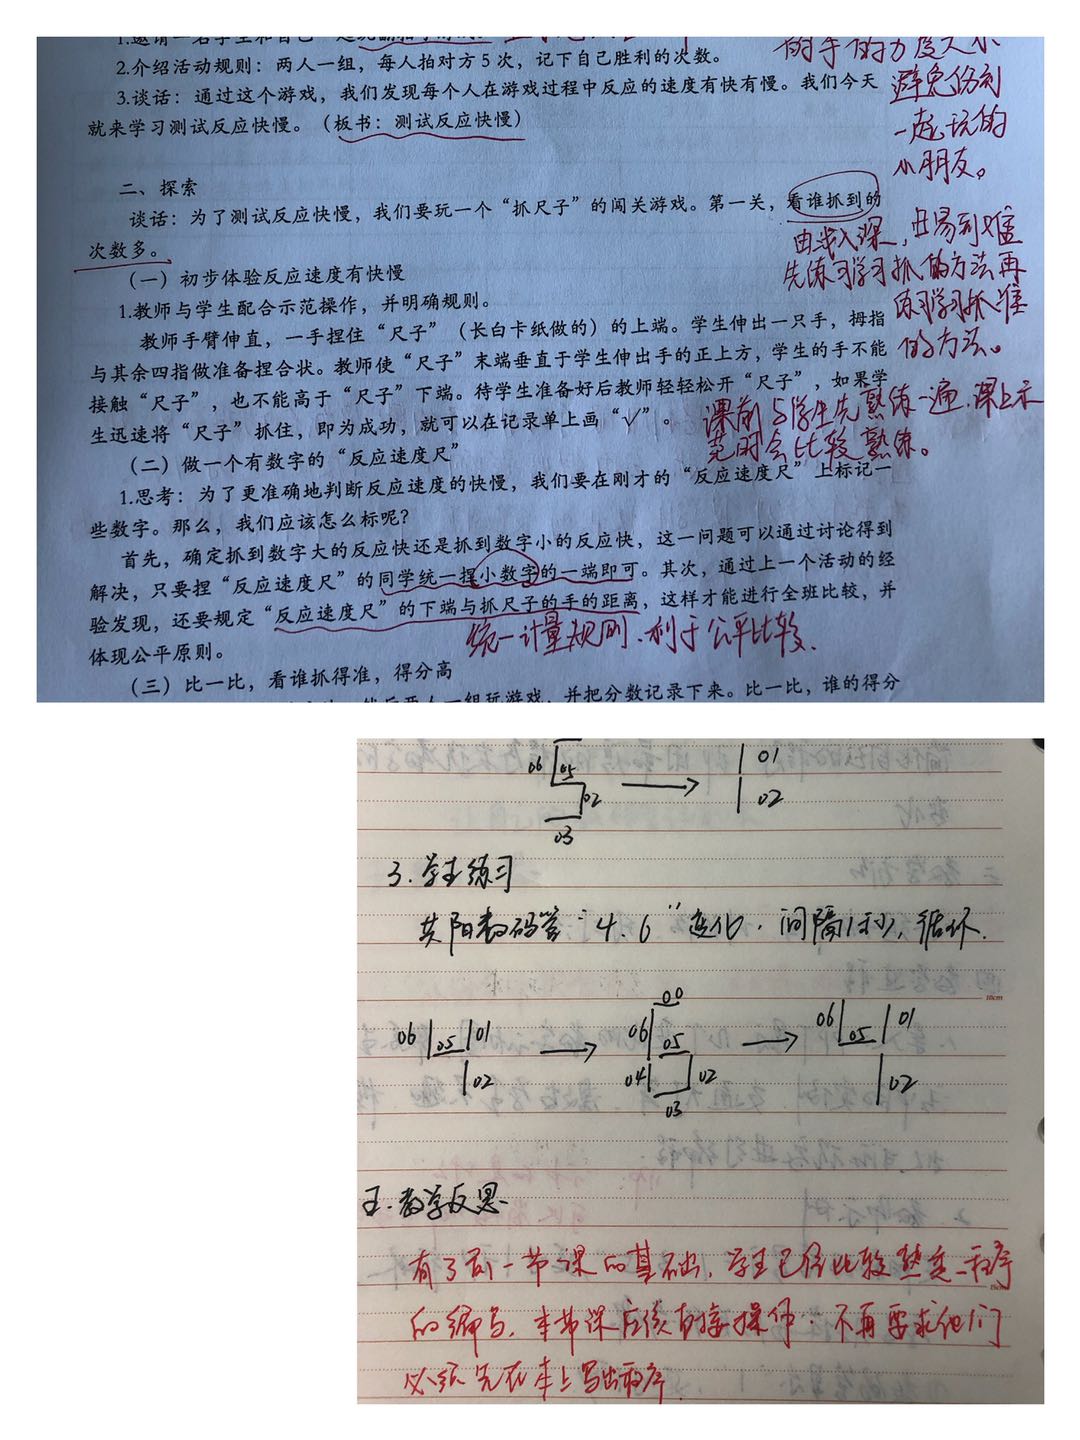 的手的力度大小
避免伤到
一起玩的
小朋友。
2.介绍活动规则：两人一组，每人拍对方5次，记下自己胜利的次数。
3.谈话：通过这个游戏，我们发现每个人在游戏过程中反应的速度有快有慢。我们今天
就来学习测试反应快慢。（板书：测试反应快慢）
二、探索
谈话：为了测试反应快慢，我们要玩一个“抓尺子”的闯关游戏。第一关，看谁抓到的
次数多。
由浅入深，由易到难
先练习学习抓的方法再
练习学习抓准
的方法。
（一）初步体验反应速度有快慢
1.教师与学生配合示范操作，并明确规则。
教师手臂伸直，一手捏住“尺子”（长白卡纸做的）的上端。学生伸出一只手，拇指
与其余四指做准备捏合状。教师使“尺子”末端垂直于学生伸出手的正上方，学生的手不能
接触“尺子”，也不能高于“尺子”下端。待学生准备好后教师轻轻松开“尺子”，如果学
生迅速将“尺子”抓住，即为成功，就可以在记录单上画“√”。
课前与学生先熟练一遍，课上示
范时会比较熟练。
（二）做一个有数字的“反应速度尺”
1.思考：为了更准确地判断反应速度的快慢，我们要在刚才的“反应速度尺”上标记一
些数字。那么，我们应该怎么标呢？
首先，确定抓到数字大的反应快还是抓到数字小的反应快，这一问题可以通过讨论得到
解决，只要捏“反应速度尺”的同学统一捏小数字的一端即可。其次，通过上一个活动的经
验发现，还要规定“反应速度尺”的下端与抓尺子的手的距离，这样才能进行全班比较，并
体现公平原则。
统一计量规则，利于公平比较.
（三）比一比，看谁抓得准，得分高
两人一组玩游戏，并把分数记录下来。比一比，谁的得分
06 05 02 03 → 01 02
3.学生练习
共阳数码管“4.6”变化，间隔1秒，循环.
06 05 01 02 → 00 06 05 04 02 03 → 06 05 01 02
五.教学反思.
有了前一节课的基础，学生已经比较熟悉程序
的编写，本节课应该直接操作，不再要求他们
必须先在本上写出程序.